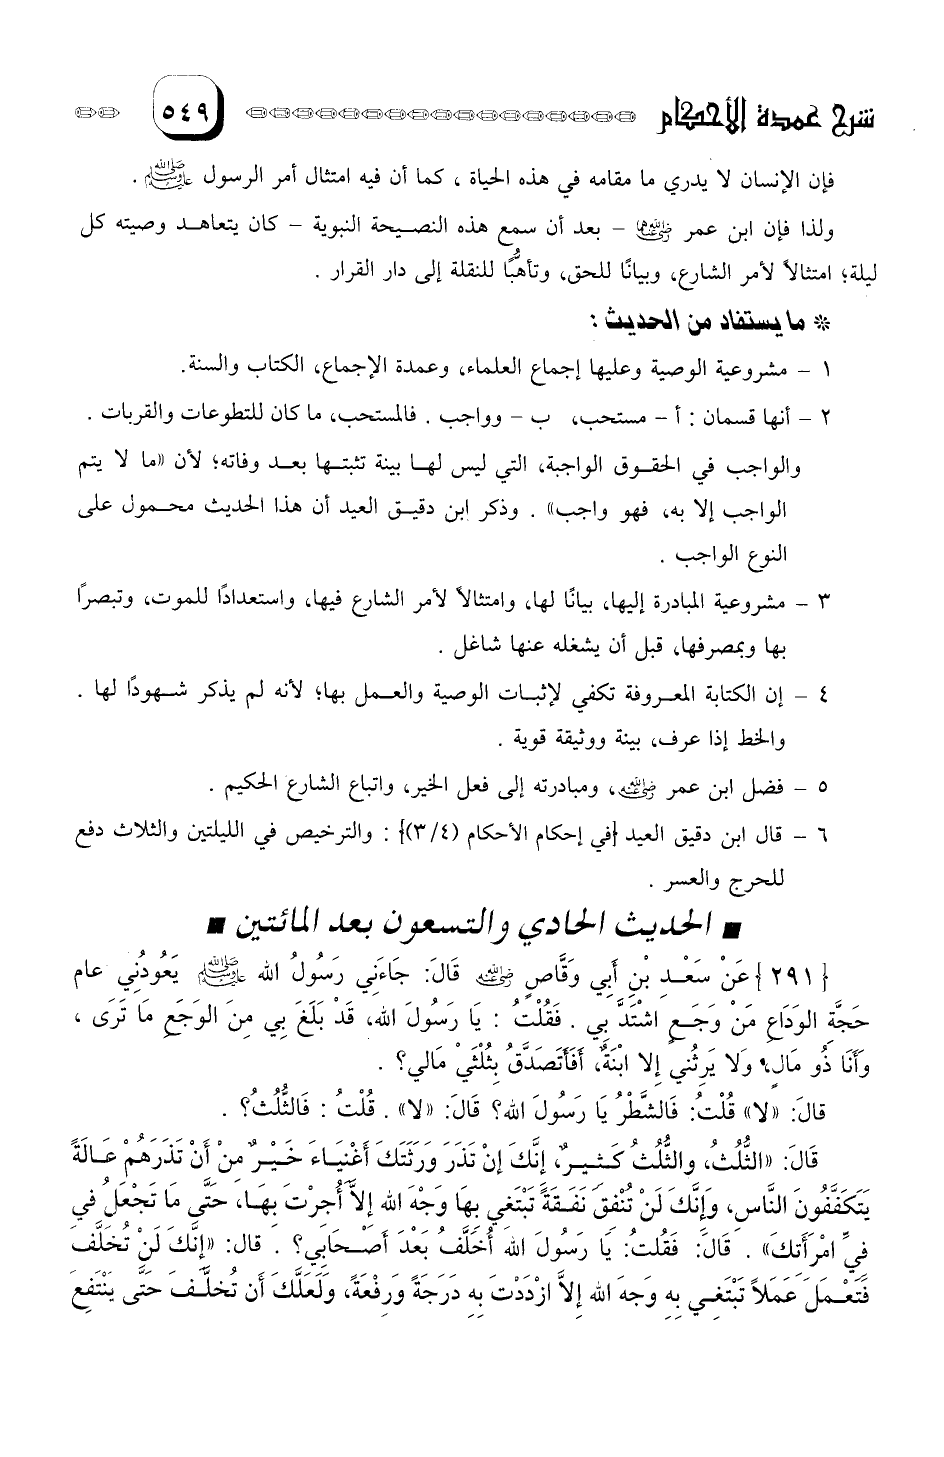 شرح عمدة الأحكام ٥٤٩
فإن الإنسان لا يدري ما مقامه في هذه الحياة ، كما أن فيه امتثال أمر الرسول ﷺ .
ولذا فإن ابن عمر رضي الله عنهما – بعد أن سمع هذه النصيحة النبوية – كان يتعاهد وصيته كل
ليلة؛ امتثالاً لأمر الشارع، وبيانًا للحق، وتأهبًا للنقلة إلى دار القرار .
* ما يستفاد من الحديث :
١ – مشروعية الوصية وعليها إجماع العلماء، وعمدة الإجماع، الكتاب والسنة.
٢ – أنها قسمان : أ – مستحب، ب – وواجب . فالمستحب، ما كان للتطوعات والقربات .
والواجب في الحقوق الواجبة، التي ليس لها بينة تثبتها بعد وفاته؛ لأن «ما لا يتم
الواجب إلا به، فهو واجب» . وذكر ابن دقيق العيد أن هذا الحديث محمول على
النوع الواجب .
٣ – مشروعية المبادرة إليها، بيانًا لها، وامتثالاً لأمر الشارع فيها، واستعدادًا للموت، وتبصرًا
بها وبمصرفها، قبل أن يشغله عنها شاغل .
٤ – إن الكتابة المعروفة تكفي لإثبات الوصية والعمل بها؛ لأنه لم يذكر شهودًا لها .
والخط إذا عرف، بينة ووثيقة قوية .
٥ – فضل ابن عمر رضي الله عنه، ومبادرته إلى فعل الخير، واتباع الشارع الحكيم .
٦ – قال ابن دقيق العيد {في إحكام الأحكام (٣/٤)} : والترخيص في الليلتين والثلاث دفع
للحرج والعسر .
■ الحديث الحادي والتسعون بعد المائتين ■
{٢٩١} عَنْ سَعْدِ بْنِ أَبِي وَقَّاصٍ رضي الله عنه قَالَ: جَاءَنِي رَسُولُ الله ﷺ يَعُودُنِي عام
حَجَّةِ الودَاعِ مَنْ وَجَعٍ اشْتَدَّ بِي . فَقُلْتُ : يا رَسُولَ الله، قَدْ بَلَغَ بِي مِنَ الوَجَعِ مَا تَرَى ،
وَأَنَا ذُو مَالٍ، وَلا يَرِثُنِي إلا ابْنَةٌ، أَفَأَتَصَدَّقُ بِثُلُثَيْ مَالِي؟ .
قالَ: «لا» قُلْتُ: فَالشَّطْرُ يَا رَسُولَ الله؟ قَالَ: «لا» . قُلْتُ : فَالثُّلُثُ؟ .
قَالَ: «الثُّلُثُ، والثُّلُثُ كَثِيرٌ، إنَّكَ إنْ تَذَرَ وَرَثَتَكَ أَغْنِيَاءَ خَيْرٌ مِنْ أَنْ تَذَرَهُم عَالَةً
يَتَكَفَّفُونَ النَّاس، وَإِنَّكَ لَنْ تُنْفِقَ نَفَقَةً تَبْتَغي بِهَا وَجْهَ الله إلاَّ أُجِرْتَ بِهَا، حَتَّى مَا تَجْعَلُ في
فِيِّ امْرَأَتِكَ» . قَالَ: فَقُلتُ: يَا رَسُولَ الله أُخَلَّفُ بَعْدَ أَصْحَابِي؟ . قال: «إِنَّكَ لَنْ تُخَلَّفَ
فَتَعْمَلَ عَمَلاً تَبْتَغِي بِهِ وَجهَ الله إلاَّ ازْدَدْتَ بِهِ دَرَجَةً وَرِفْعَةً، وَلَعَلَّكَ أَن تُخَلَّفَ حَتَّى يَنْتَفِعَ